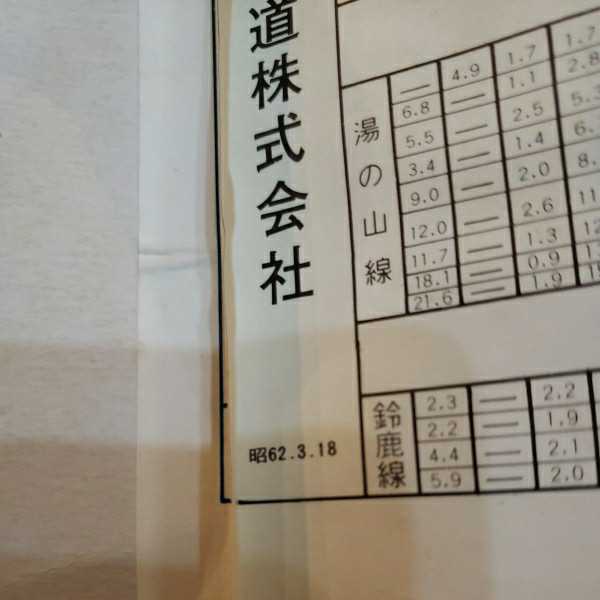 道株式会社
昭62.3.18
湯の山線
— 4.9 1.7 1.7
6.8 — 1.1 2.8
5.5 — 2.5 5.3
3.4 — 1.4
9.0 — 2.0
12.0 — 2.6
11.7 — 1.3
18.1 — 0.9
21.6 — 1.9
鈴鹿線
2.3 — 2.2
2.2 — 1.9
4.4 — 2.1
5.9 — 2.0